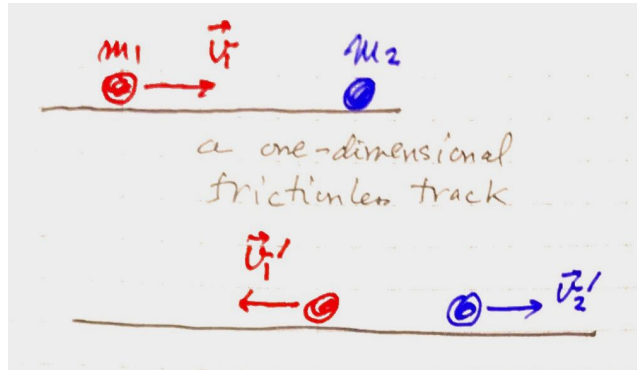 m₁ v⃗₁ m₂
a one-dimensional
frictionless track
v⃗₁′ v⃗₂′